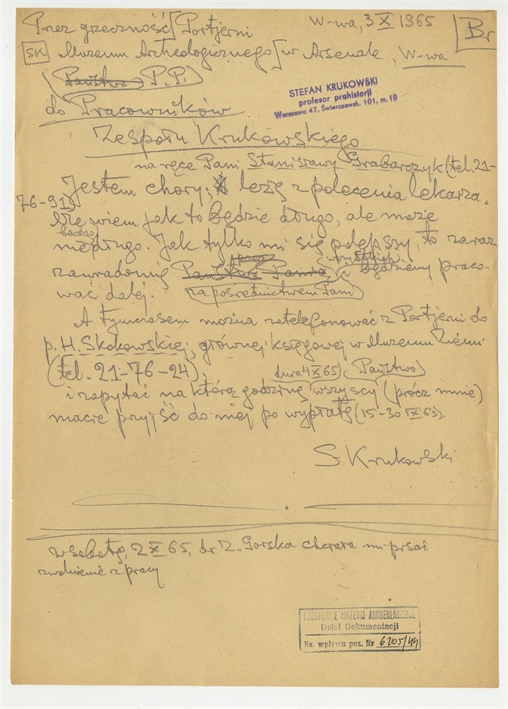 Przez grzeczność Portjerni W-wa, 3 X 1965 Br
SK Muzeum Archeologicznego w Arsenale, W-wa
(Państwo P.P.)
STEFAN KRUKOWSKI
profesor prehistorii
Warszawa 47, Świerczewsk. 101, m. 10
do Pracowników
Zespołu Krukowskiego
na ręce Pani Stanisławy Grabarczyk (tel. 21-
76-91)
Jestem chory; leżę z polecenia lekarza.
Nie wiem jak to będzie długo, ale może
niedługo. Jak tylko mi się polepszy, to zaraz
zawiadomię wszystkich i będziemy praco-
wać dalej. za pośrednictwem Pani
A tymczasem można zatelefonować z Portjerni do
p. H. Skokowskiej, głównej księgowej w Muzeum Ziemi
(tel. 21-76-24), dnia 4 X 65 (Państwo)
i zapytać na którą godzinę wszyscy (prócz mnie)
macie przyjść do niej po wypłatę (15-30 IX 65).
S Krukowski
w sobotę, 2 X 65, dr Z. Gorska chciała mi pisać
zwolnienie z pracy
PAŃSTWOWE MUZEUM ARCHEOLOGICZNE
Dział Dokumentacji
Ks. wpływu poz. Nr 6205/44